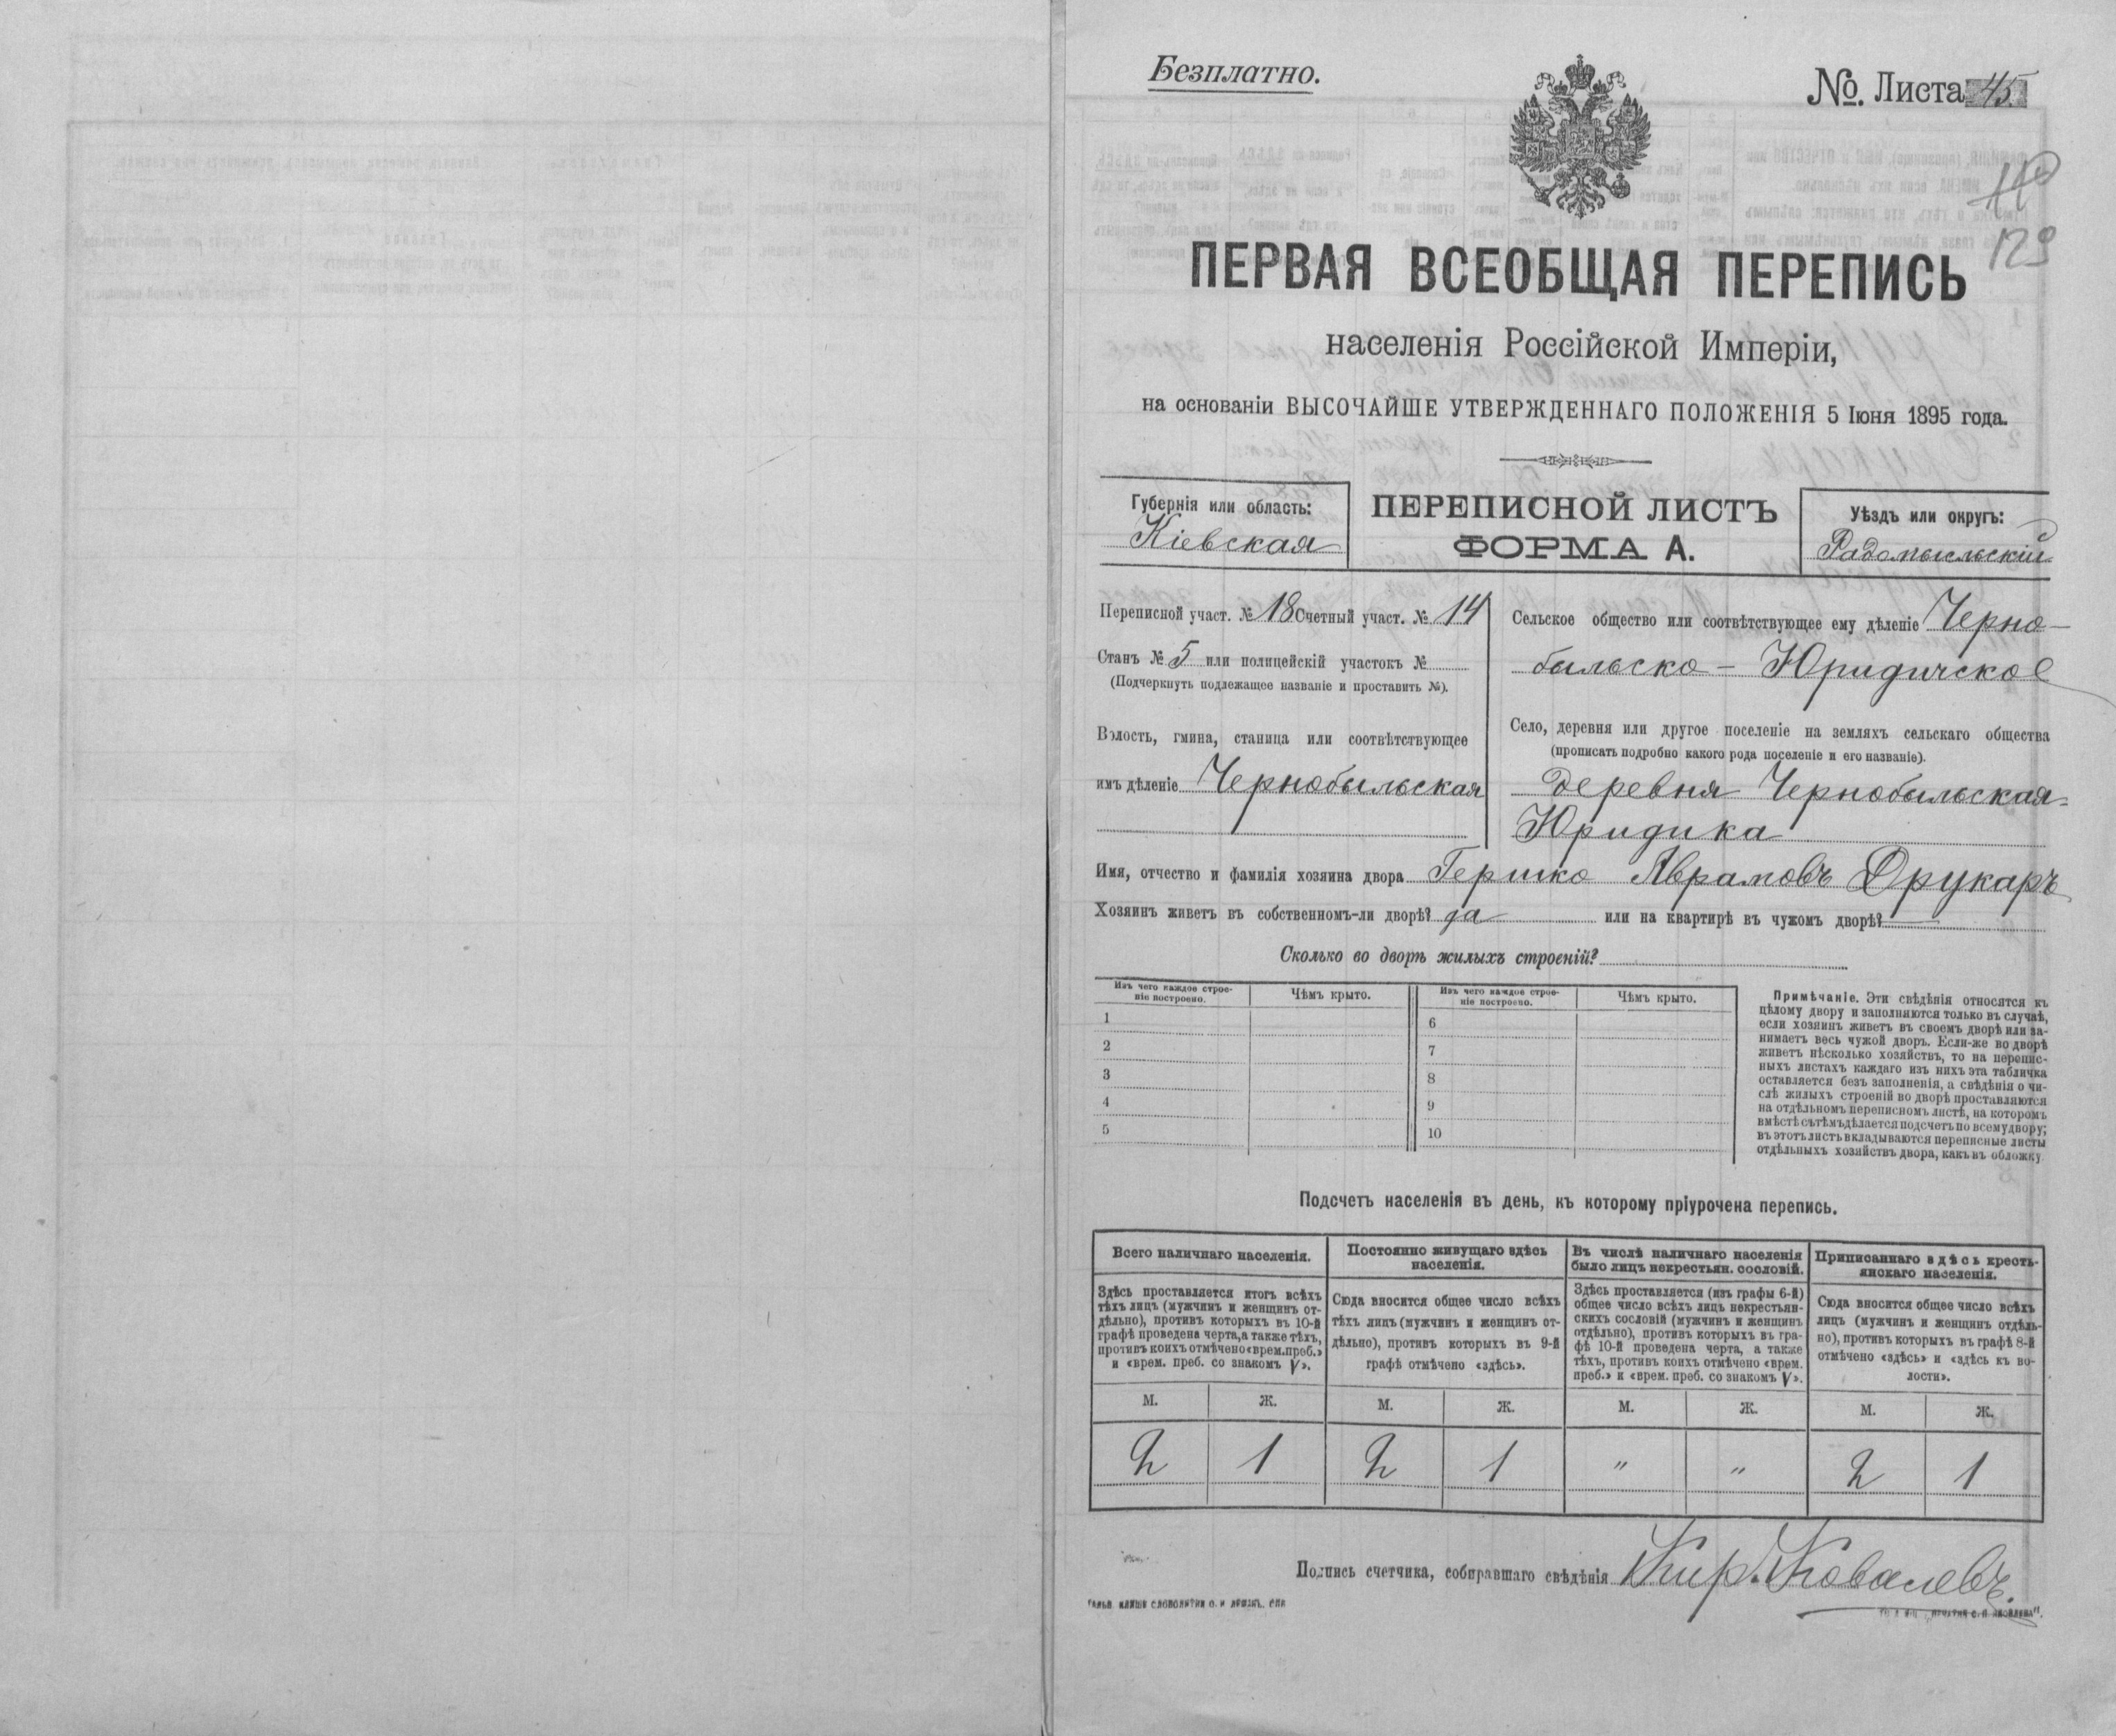 Безплатно.
№. Листа 45
110
129
ПЕРВАЯ ВСЕОБЩАЯ ПЕРЕПИСЬ
населенія Россійской Имперіи,
на основаніи ВЫСОЧАЙШЕ УТВЕРЖДЕННАГО ПОЛОЖЕНІЯ 5 Іюня 1895 года.
Губернія или область:
Кіевская
ПЕРЕПИСНОЙ ЛИСТЪ
ФОРМА А.
Уѣздъ или округъ:
Радомысльскій
Переписной участ. № 18 Счетный участ. № 14
Станъ № 5 или полицейскій участокъ №
(Подчеркнуть подлежащее названіе и проставить №).
Волость, гмина, станица или соотвѣтствующее
имъ дѣленіе Чернобыльская
Сельское общество или соотвѣтствующее ему дѣленіе Черно-
быльско-Юридичское
Село, деревня или другое поселеніе на земляхъ сельскаго общества
(прописать подробно какого рода поселеніе и его названіе).
деревня Чернобыльская-
Юридика
Имя, отчество и фамилія хозяина двора Гершко Аврамовъ Друкаръ
Хозяинъ живетъ въ собственномъ-ли дворѣ? да или на квартирѣ въ чужомъ дворѣ? —
Сколько во дворѣ жилыхъ строеній?
Изъ чего каждое строе-
ніе построено.
Чѣмъ крыто.
Изъ чего каждое строе-
ніе построено.
Чѣмъ крыто.
1
2
3
4
5
6
7
8
9
10
Примѣчаніе. Эти свѣдѣнія относятся къ
цѣлому двору и заполняются только въ случаѣ,
если хозяинъ живетъ въ своемъ дворѣ или за-
нимаетъ весь чужой дворъ. Если-же во дворѣ
живетъ нѣсколько хозяйствъ, то на перепис-
ныхъ листахъ каждаго изъ нихъ эта табличка
оставляется безъ заполненія, а свѣдѣнія о чи-
слѣ жилыхъ строеній во дворѣ проставляются
на отдѣльномъ переписномъ листѣ, на которомъ
вмѣстѣ съ тѣмъ дѣлается подсчетъ по всему двору;
въ этотъ листъ вкладываются переписные листы
отдѣльныхъ хозяйствъ двора, какъ въ обложку
Подсчетъ населенія въ день, къ которому пріурочена перепись.
Всего наличнаго населенія.
Здѣсь проставляется итогъ всѣхъ
тѣхъ лицъ (мужчинъ и женщинъ от-
дѣльно), противъ которыхъ въ 10-й
графѣ проведена черта, а также тѣхъ,
противъ коихъ отмѣчено «врем. преб.»
и «врем. преб. со знакомъ V».
Постоянно живущаго здѣсь
населенія.
Сюда вносится общее число всѣхъ
тѣхъ лицъ (мужчинъ и женщинъ от-
дѣльно), противъ которыхъ въ 9-й
графѣ отмѣчено «здѣсь».
Въ числѣ наличнаго населенія
было лицъ некрестьян. сословій.
Здѣсь проставляется (изъ графы 6-й)
общее число всѣхъ лицъ некрестьян-
скихъ сословій (мужчинъ и женщинъ
отдѣльно), противъ которыхъ въ гра-
фѣ 10-й проведена черта, а также
тѣхъ, противъ коихъ отмѣчено «врем.
преб.» и «врем. преб. со знакомъ V».
Приписаннаго здѣсь кресть-
янскаго населенія.
Сюда вносится общее число всѣхъ
лицъ (мужчинъ и женщинъ отдѣль-
но), противъ которыхъ въ графѣ 8-й
отмѣчено «здѣсь» и «здѣсь къ во-
лости».
М. Ж. М. Ж. М. Ж. М. Ж.
2 1 2 1 " " 2 1
Подпись счетчика, собиравшаго свѣдѣнія Кир. Ковалевъ.